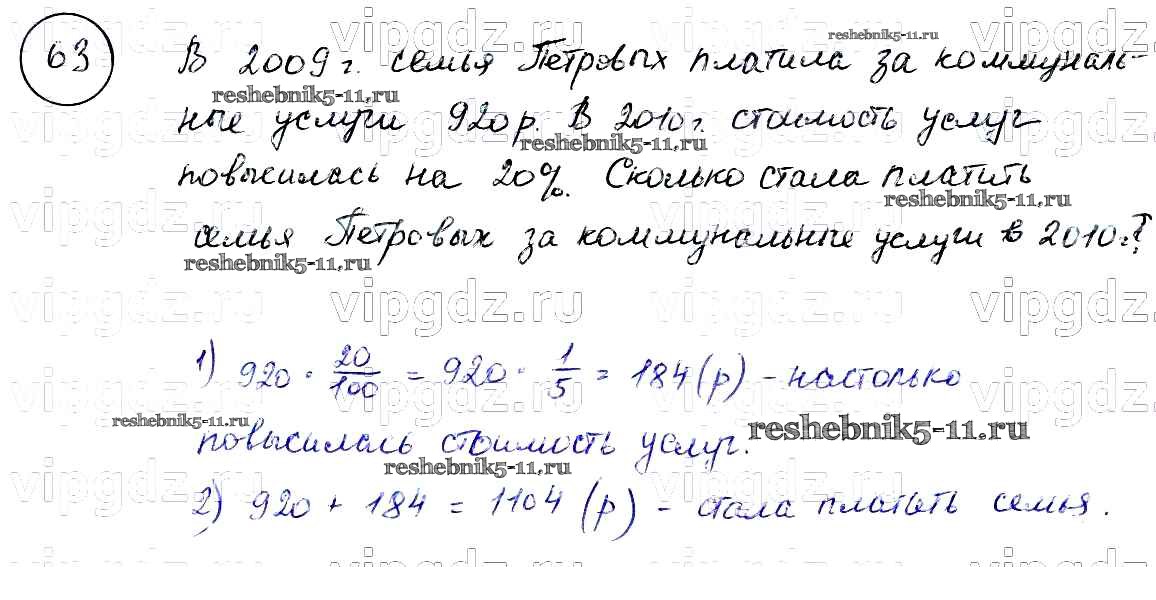 63
В 2009 г. семья Петровых платила за коммуналь-
ные услуги 920 р. В 2010 г. стоимость услуг
повысилась на 20%. Сколько стала платить
семья Петровых за коммунальные услуги в 2010 г.?
1) 920 · 20/100 = 920 · 1/5 = 184 (р) - настолько
повысилась стоимость услуг.
2) 920 + 184 = 1104 (р) - стала платить семья.
vipgdz.ru
reshebnik5-11.ru